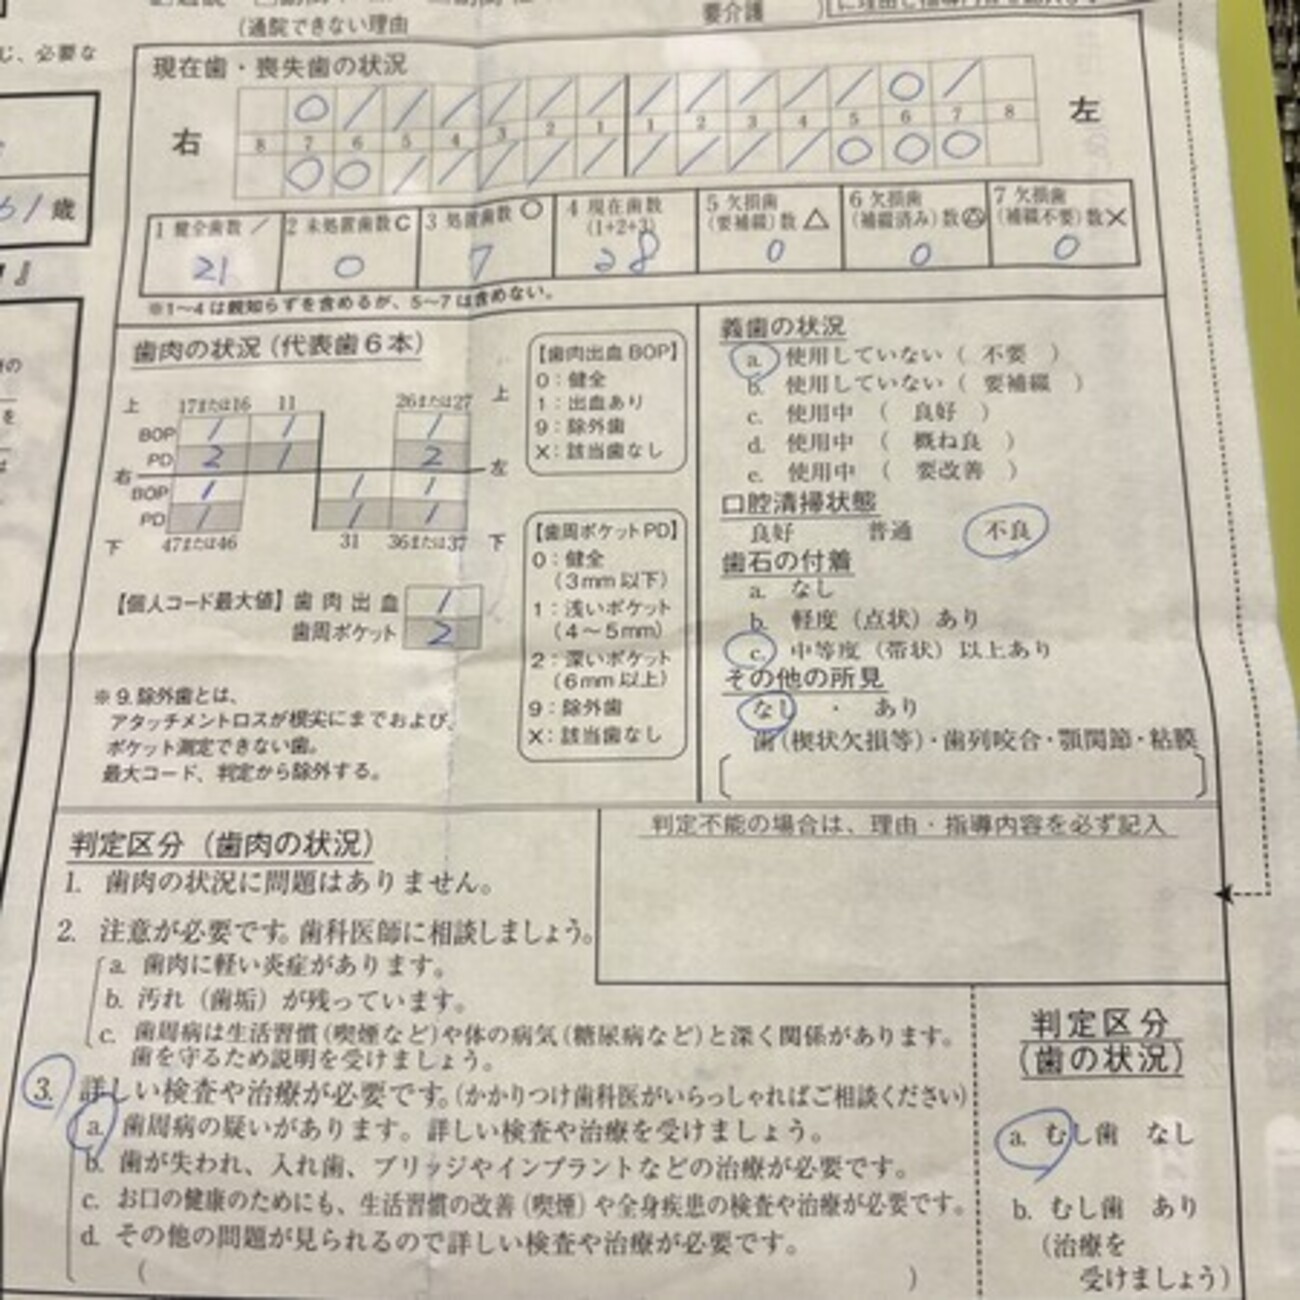 (通院できない理由
要介護 )
じ、必要な
61歳
現在歯・喪失歯の状況
右 左
○ / / / / / / / / / / / ○ /
8 7 6 5 4 3 2 1 1 2 3 4 5 6 7 8
○ ○ / / / / / / / / / ○ ○ ○
1 健全歯数 / 2 未処置歯数 C 3 処置歯数 ○ 4 現在歯数 (1+2+3) 5 欠損歯 (要補綴)数 △ 6 欠損歯 (補綴済み)数 7 欠損歯 (補綴不要)数 ×
21 0 7 28 0 0 0
※1〜4は親知らずを含めるが、5〜7は含めない。
歯肉の状況(代表歯6本)
上 17または16 11 26または27 上
BOP 1 1 1
PD 2 1 2
右 左
BOP 1 1 1
PD 1 1 1
下 47または46 31 36または37 下
【個人コード最大値】歯肉出血 1
歯周ポケット 2
※ 9.除外歯とは、
アタッチメントロスが根尖にまでおよび、
ポケット測定できない歯。
最大コード、判定から除外する。
【歯肉出血BOP】
0:健全
1:出血あり
9:除外歯
X:該当歯なし
【歯周ポケットPD】
0:健全
(3mm以下)
1:浅いポケット
(4〜5mm)
2:深いポケット
(6mm以上)
9:除外歯
X:該当歯なし
義歯の状況
a. 使用していない( 不要 )
b. 使用していない( 要補綴 )
c. 使用中 ( 良好 )
d. 使用中 ( 概ね良 )
e. 使用中 ( 要改善 )
口腔清掃状態
良好 普通 不良
歯石の付着
a. なし
b. 軽度(点状)あり
c. 中等度(帯状)以上あり
その他の所見
なし ・ あり
歯(楔状欠損等)・歯列咬合・顎関節・粘膜
判定不能の場合は、理由・指導内容を必ず記入
判定区分(歯肉の状況)
1. 歯肉の状況に問題はありません。
2. 注意が必要です。歯科医師に相談しましょう。
a. 歯肉に軽い炎症があります。
b. 汚れ(歯垢)が残っています。
c. 歯周病は生活習慣(喫煙など)や体の病気(糖尿病など)と深く関係があります。
歯を守るため説明を受けましょう。
3. 詳しい検査や治療が必要です。(かかりつけ歯科医がいらっしゃればご相談ください)
a. 歯周病の疑いがあります。詳しい検査や治療を受けましょう。
b. 歯が失われ、入れ歯、ブリッジやインプラントなどの治療が必要です。
c. お口の健康のためにも、生活習慣の改善(喫煙)や全身疾患の検査や治療が必要です。
d. その他の問題が見られるので詳しい検査や治療が必要です。
( )
判定区分
(歯の状況)
a. むし歯 なし
b. むし歯 あり
(治療を
受けましょう)